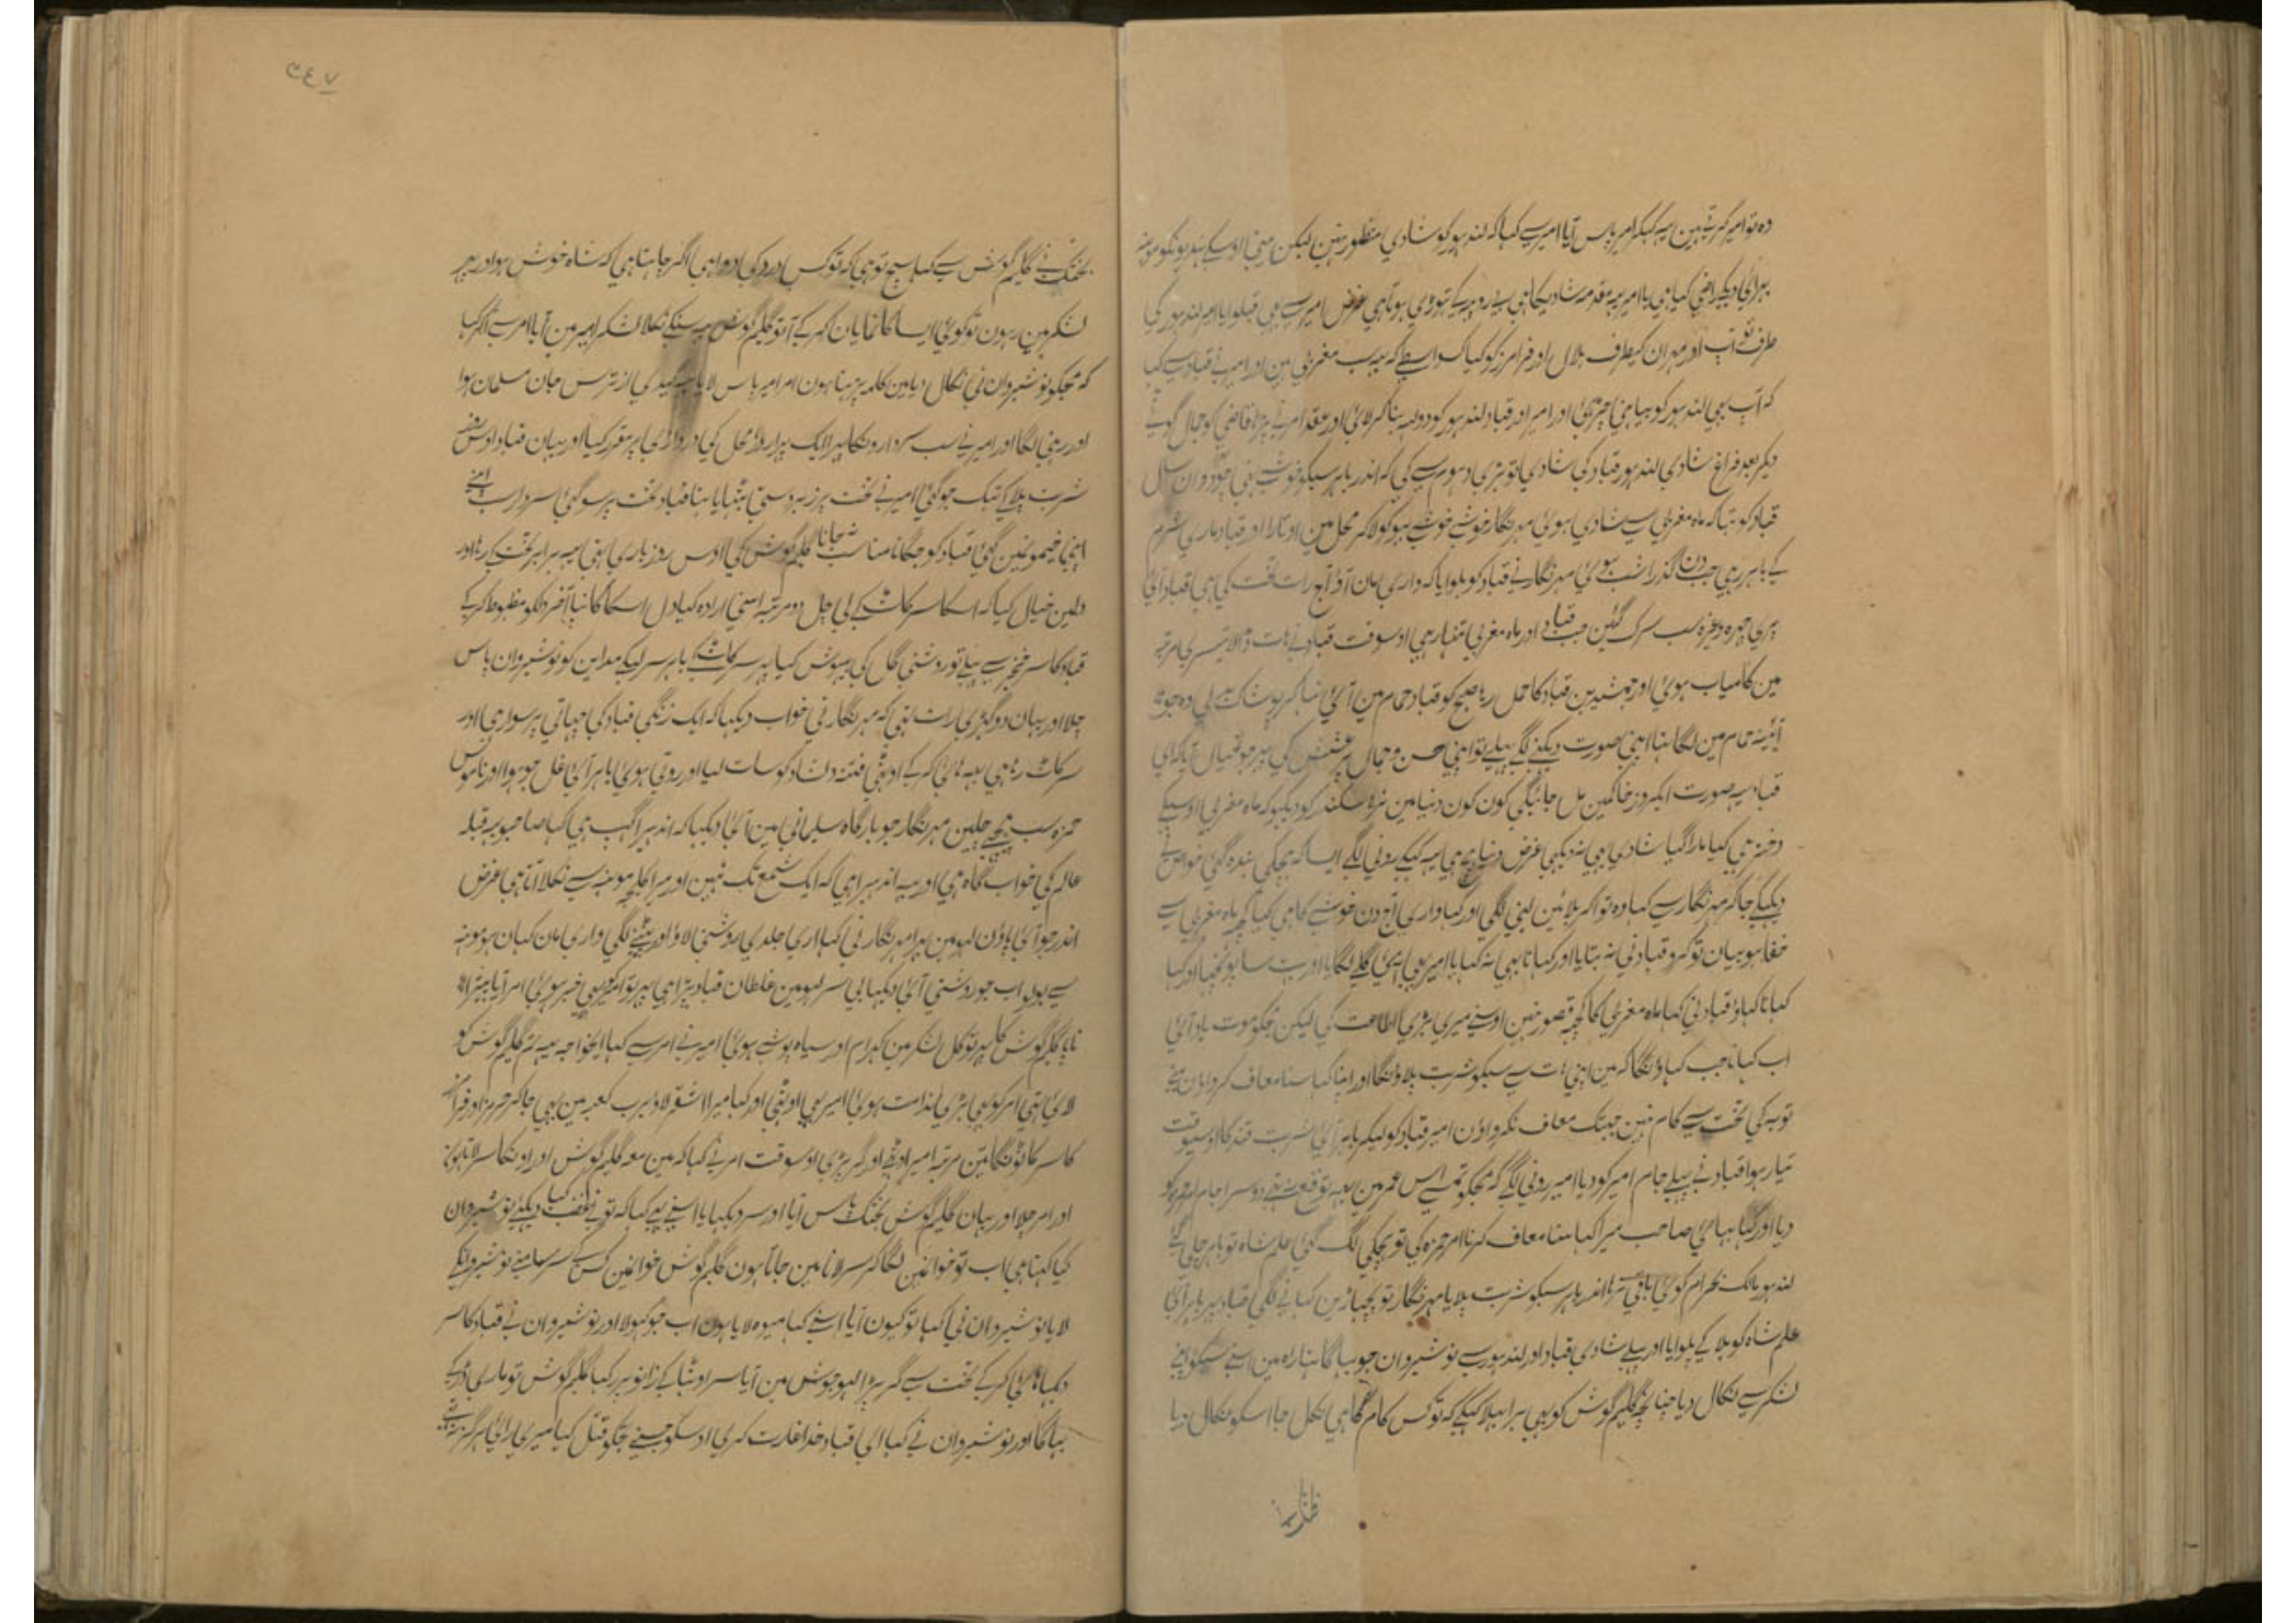 وہ تو امیر کرتے ہین یہ کہکر امیر پاس آیا امیر سے کہا کہ لندہور کو شادی منظور نہین لیکن مینی اوسکے
راضی کیا ہی یا امیر یہ مقدمہ شادیکا ہی بی روپیہ کے تہوڑی ہوتا ہی غرض امیر سے بہی قبلوایا امیر لندہور کی
طرف ہوئے آپ اور مہران کیطرف ہلال اور فرامرز کو کیا کسواسطے کہ یہ سب مغربی ہین اور امیر نے قباد سے کہا
کہ آپ بہی لندہور کو بیاہنی چڑہئی اور امیر اور قباد لندہور کو دولہہ بنا کر لائی اور عقد امیر نے پڑہا قاضی کو جہال گوئے
دیکر بعد فراغ شادی لندہور قباد کی شادی تو بڑی دہوم سے کی کہ اندر باہر سبکو خوشے ہتی چودوان سال
قباد کو تہا کہ ماہ مغربی سے شادی ہوئی مہرنگار خوشے خوشے بہو کو لاکر محل مین اوتارا اور قباد ماری شرم
کے باہر رہی جب دن گذرا شب ہوئی مہرنگار نے قباد کو بلوایا کہ واری مان آؤ آج رات تخت کی ہی قباد آئی
پری چہرہ وغیرہ سب سرک گئین جب قباد اور ماہ مغربی تنہا رہی اوسوقت قباد نے ہات ڈالا تیسری مرتبہ
مین کامیاب ہوئی اور جمشید بن قباد کا حمل رہا صبح کو قباد حمام مین آئی نہا کر پوشاک پہنی وہ جو
آئینہ حمام مین لگا تہا اپنی صورت دیکہنے لگے پہلے تو اپنی حسن و جمال پر عشعش کی پہر جو خیال آیا کہ ای
قباد یہ صورت ایکروز خاکمین مل جائیگی کون کون دنیا مین نرہا سکندر کو دیکہو کہ ماہ مغربی اوسیکے
دختر ہی کیا مارا گیا شادی بہی نہ دیکہی غرض دنیا ہیچ ہی یہ کہکے رونی لگے ایسا کہ ہچکی بندہ گئی خواص نے
دیکہکے جاکر مہرنگار سے کہا وہ تو آکر بلائین لینی لگی اور کہا واری آج دن خوشے کا ہی کیا کچہہ ماہ مغربی سے
خفا ہو بیان تو کرو قباد نی نہ بتایا اور کہانا بہی نہ کہایا امیر بہی آئی گلے لگایا اور بہت سا پونچہا او کہا
کہانا کہاؤ قباد نی کہا ماہ مغربی کا کچہہ قصور نہین اوسنے میری بڑی اطاعت کی لیکن مجکو موت یاد آئی
اب کہانا جب کہاؤنگا کہ مین اپنی ہات سے سبکو شربت پلاؤنگا اور اپنا کہا سنا معاف کرواؤن مینے
توبہ کی تخت سے کام نہین جبتک معاف نکرواؤن امیر قباد کو لیکر باہر آئی شربت قند کا اوسیوقت
تیار ہوا قباد نے پہلے جام امیر کو دیا امیر رونی لگے کہ مجکو تمسے اس عمر مین یہہ توقع نتہے دوسرا جام لندہور کو
دیا اور کہا بہائی صاحب میرا کہا سنا معاف کرنا امیر حمزہ کی تو ہچکی لگ گئی علم شاہ تو باہر چلی گئے
لندہور مالک بہرام کوئی باقی نہ رہا اندر باہر سبکو شربت پلایا مہرنگار تو پچہاڑین کہانے لگی قباد پہر باہر آئی
علم شاہ کو بلا کے پلوایا اور پہلے شادی قباد اور لندہور سے نوشیروان جو بہاگا تہا راہ مین اسنے سبکو اپنے
لشکر سے نکال دیا چنانچہ گلیم گوش کو بہی برا بہلا کہکے کہ تو کس کام کا ہی نکل جا اسکو نکال دیا
٣٤٧
بختک نے گلیم گوش سے کہا سچ تو ہی کہ تو کس درد کی دوا ہی اگر چاہتا ہی کہ شاہ خوش ہو اور پہر
لشکر مین رہون تو کوئی ایسا کار نمایان کرکے آ تو گلیم گوش یہ سنکے نکلا لشکر امیر مین آیا امیر سے آکر کہا
کہ مجکو نوشیروان نی نکال دیا مین کلمہ پڑہتا ہون امیر پاس لایا از ترس جان مسلمان ہوا
اور رہنی لگا اور امیر نے سب سردارونکا پہرا ایک ہزار محل کی دروازی پر مقرر کیا اور یہان قباد اوس
شربت پلا کے تہک جو گئی امیر نے تخت پر زبردستی بٹہایا تہا قباد تخت پر سو گئی سردار سب اپنے
اپنی خیمونمین گئی قباد کو جگانا مناسب نہ جانا گلیم گوش کی اوس روز باری ہتی یہ برابر تخت کے رہا اور
دلمین خیال کیا کہ اسکا سر کاٹ کے لی چل دو مرتبہ اسنی ارادہ کیا دل اسکا کانپا آخر دلکو مضبوط کرکے
قباد کا سر خنجر سے پہلے تو روشنی گل کی بیہوش کیا پہر سر کاٹ کے باہر سر لیکے مداین کو نوشیروان پاس
چلا اور یہان دو گہڑی رات تہی کہ مہرنگار نی خواب دیکہا کہ ایک زنگی قباد کی چہاتی پر سوار ہی اور
سر کاٹ رہا ہی یہہ ہائی کرکے اوٹہی فتنہ و دلشاد کو سات لیا اور روتی ہوئی باہر آئی غل جو ہوا اور ناموس
حمزہ سب پیچہے چلین مہرنگار جو بارگاہ سلیمانی مین آئی دیکہا کہ اندہیرا گہپ ہی کہا صاحبو یہ قبلہ
عالم کی خواب گاہ ہی اور یہ اندہیرا ہی کہ ایک شمع تک نہین اور میرا کلیجہ مونہہ سے نکلا آتا ہی غرض
اندر جو آئی پاؤن لہو مین پڑا مہرنگار نی کہا اری جلدی روشنی لاؤ اور پیٹنے لگی واری مان کہان ہو مونہہ
سے بولو اب جو روشنی آئی دیکہا بی سر لہو مین غلطان قباد پڑا ہی پہر تو امیر کو بہی خبر ہوئی امیر آیا پتہ
نہ پایا گلیم گوش کا پہر تو کل لشکر مین کہرام اور سیاہ پوشے ہوئی امیر نے امر سے کہا ایخواجہ یہہ تم گلیم گوش کو
لائی تہی امر کو بہی بڑی ندامت ہوئی امیر بہی اوٹہی اور کہا میرا اشقر لاؤ سب کعبہ مین بہی جاکر ہرمز اور فرامرز
کا سر کاٹونگا تین مرتبہ امیر اوٹہے اور گر پڑی اوسوقت امر نے کہا کہ مین معہ گلیم گوش اور اونکا سر لاتا ہون
اور امر چلا اور یہان گلیم گوش بختک پاس آیا اور سر دیکہایا اسنے کہا کہ تونے غضب کیا دیکہئے نوشیروان
کیا کہتا ہی اب تو خوانمین لگا کر سر لانا مین جاتا ہون گلیم گوش خوانمین کس کے سر سامہنے نوشیروانکے
لایا نوشیروان نی کہا تو کیون آیا اسنے کہا میوہ لایا ہون اب جو کہولا اور نوشیروان نے قباد کا سر
دیکہا ہائی کرکے تخت سے گر پڑا لہو جوش مین آیا سر اوٹہا کے زانو پر رکہا گلیم گوش تو ماری ڈر کے
بہاگا اور نوشیروان نے کہا ای قباد خدا غارت کری اوسکو جسنے تجکو قتل کیا میری رائی ہرگز نہ تہے